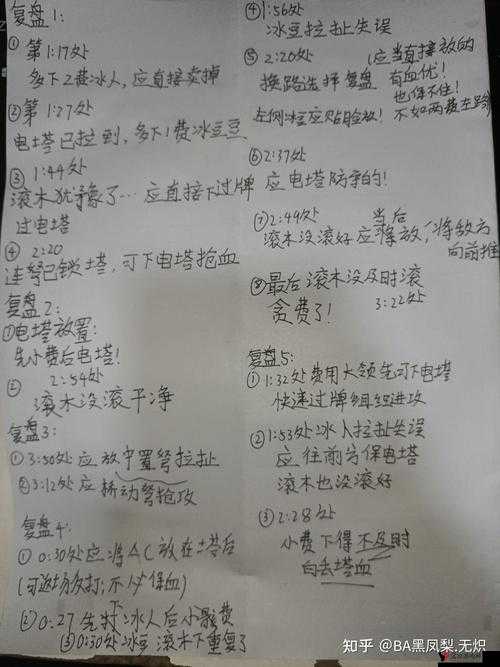 复盘1:
① 第1:17处
多下2费冰人,应直接卖掉
② 第1:27处
电塔已拉到,多下1费冰豆豆
③ 1:44处
滚木犹豫了… 应直接下过牌
过电塔
④ 2:20
连弩已锁塔,可下电塔抢血
复盘2:
①电塔放置:
先小费后电塔!
② 2:54处
滚木没滚干净
复盘3:
①3:50处应放中置弩拉扯
②3:12处应桥动弩抢攻
复盘4:
① 0:30处应将AC放在塔后
② 0:27
③0:30处冰豆滚木下重复了
④1:56处
冰豆拉扯失误
⑤ 2:20处 应当直接放的
换路选择复盘 有血优!
也保不住!
左侧冰豆应贴脸放! 不如两费左路
⑥ 2:37处
应电塔防守的!
⑦2:49处 当后
滚木没滚好应将放/将敌方
向前推
⑧最后滚木没及时滚
贪费了! 3:22处
复盘5:
① 1:32处费用大领先可下电塔
快速过牌组织进攻
②1:53处冰人拉扯失误
应往前方保电塔
滚木也没滚好
③ 2:28处
小费下得不及时
白丢塔血
知乎 @BA黑凤梨.无炽